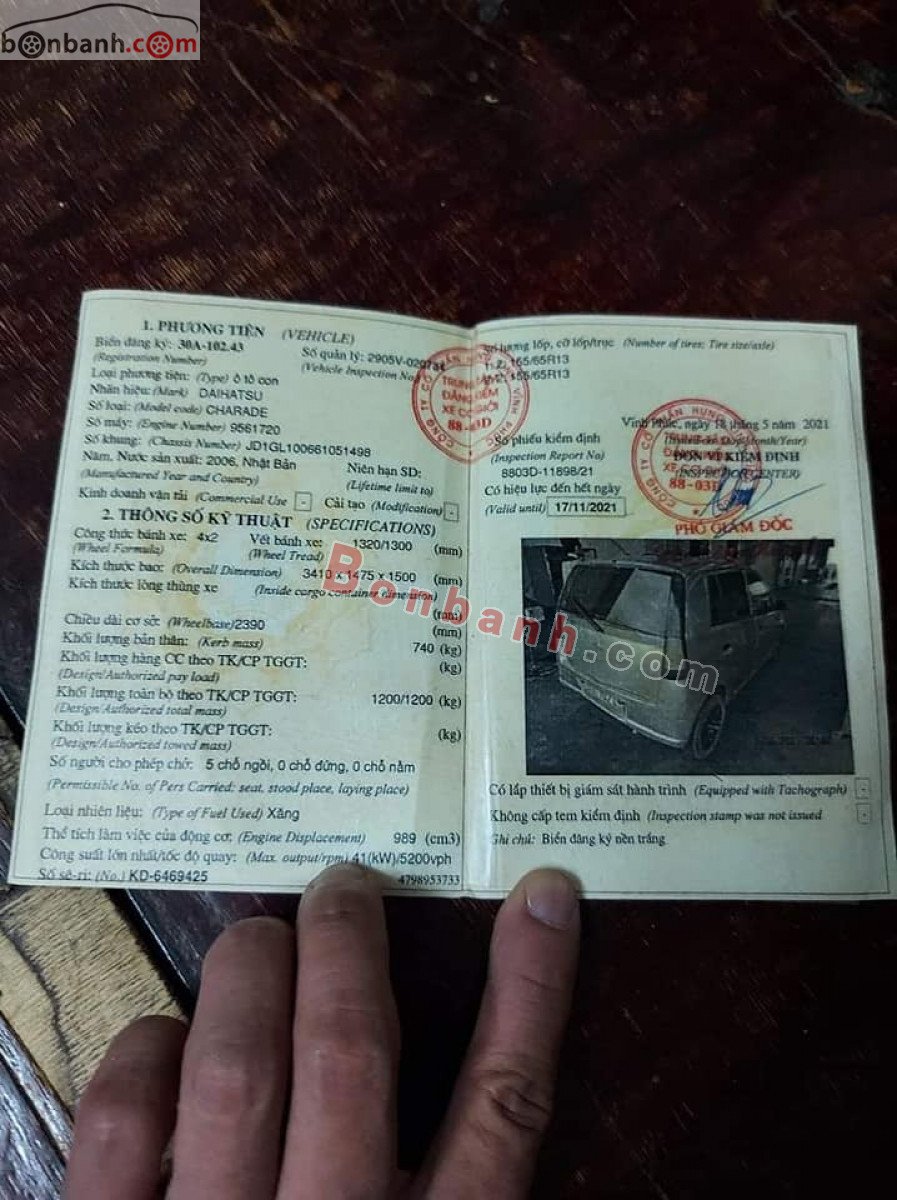 bonbanh.com
1. PHƯƠNG TIỆN (VEHICLE)
Biển đăng ký: 30A-102.43
Số quản lý: 2905V-020
(Registration Number)
(Vehicle Inspection No)
Loại phương tiện: (Type) ô tô con
Nhãn hiệu: (Mark) DAIHATSU
Số loại: (Model code) CHARADE
Số máy: (Engine Number) 9561720
Số khung: (Chassis Number) JD1GL100661051498
Năm, Nước sản xuất: 2006, Nhật Bản
Niên hạn SD:
(Manufactured Year and Country)
(Lifetime limit to)
Kinh doanh vận tải (Commercial Use) - Cải tạo (Modification) -
2. THÔNG SỐ KỸ THUẬT (SPECIFICATIONS)
Công thức bánh xe: 4x2 Vết bánh xe: 1320/1300 (mm)
(Wheel Formula) (Wheel Tread)
Kích thước bao: (Overall Dimension) 3410 x 1475 x 1500 (mm)
Kích thước lòng thùng xe (Inside cargo container dimension)
(mm)
Chiều dài cơ sở: (Wheelbase) 2390 (mm)
Khối lượng bản thân: (Kerb mass) 740 (kg)
Khối lượng hàng CC theo TK/CP TGGT: (kg)
(Design/Authorized pay load)
Khối lượng toàn bộ theo TK/CP TGGT: 1200/1200 (kg)
(Design/Authorized total mass)
Khối lượng kéo theo TK/CP TGGT: (kg)
(Design/Authorized towed mass)
Số người cho phép chở: 5 chỗ ngồi, 0 chỗ đứng, 0 chỗ nằm
(Permissible No. of Pers Carried: seat, stood place, laying place)
Loại nhiên liệu: (Type of Fuel Used) Xăng
Thể tích làm việc của động cơ: (Engine Displacement) 989 (cm3)
Công suất lớn nhất/tốc độ quay: (Max. output/rpm) 41(kW)/5200vph
Số sê-ri: (No.) KD-6469425 4798953733
Số lượng lốp, cỡ lốp/trục (Number of tires; Tire size/axle)
155/65R13
155/65R13
TRUNG TÂM
ĐĂNG KIỂM
XE CƠ GIỚI
88-03D
Vĩnh Phúc, ngày 18 tháng 5 năm 2021
Số phiếu kiểm định
(Inspection Report No)
8803D-11698/21
ĐƠN VỊ KIỂM ĐỊNH
(INSPECTION CENTER)
88-03D
Có hiệu lực đến hết ngày
(Valid until) 17/11/2021
PHÓ GIÁM ĐỐC
Bonbanh.com
Có lắp thiết bị giám sát hành trình (Equipped with Tachograph) -
Không cấp tem kiểm định (Inspection stamp was not issued -
Ghi chú: Biển đăng ký nền trắng